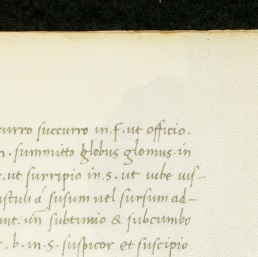 curro succurro in.f.ut officio.
n. summitto globus glomus.in
.ut surripio in.s. ut iube ius-
ustuli á susum uel sursum ad-
unt. un̄ subtimio & subcumbo
. b. in.s. suspicor et suscipio